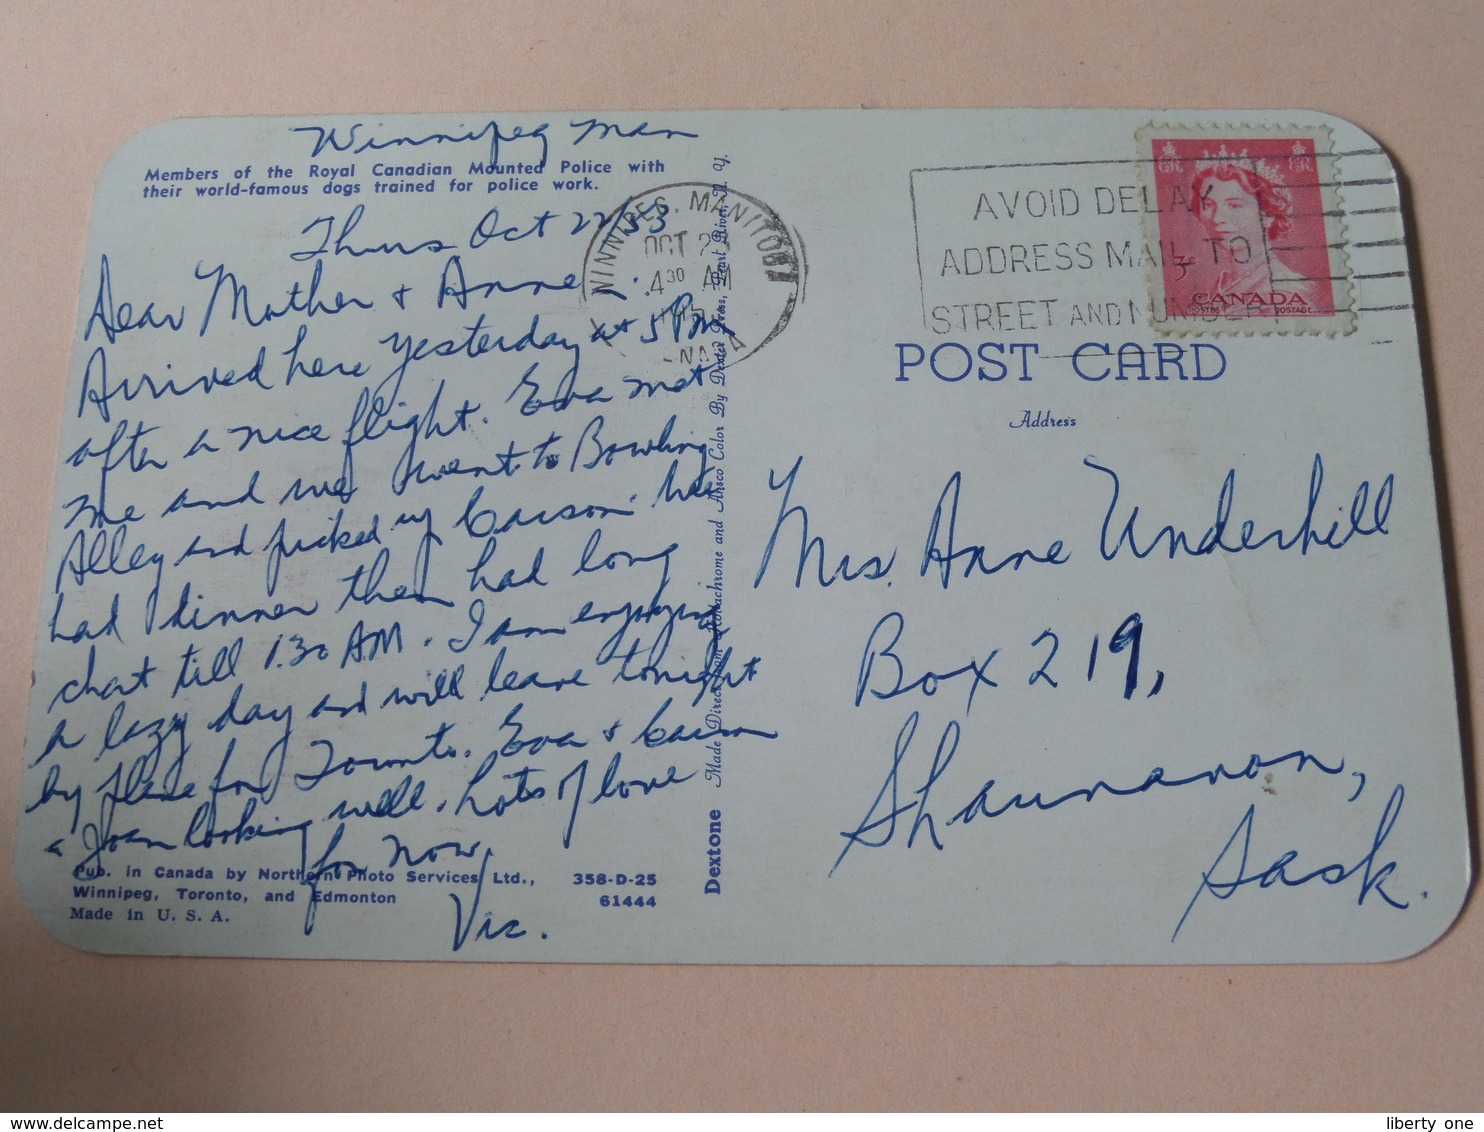 Winnipeg Man
Members of the Royal Canadian Mounted Police with
their world-famous dogs trained for police work.
Thurs Oct 22/53
Dear Mother + Anne
Arrived here yesterday at 5 PM
after a nice flight. Eva met
me and we went to Bowling
Alley and picked up Carson. We
had dinner then had long
chat till 1.30 AM. I am enjoying
a lazy day and will leave tonight
by plane for Toronto. Eva + Carson
+ Joan looking well. Lots of love
for now,
Vic.
Pub. in Canada by Northern Photo Services Ltd.,
Winnipeg, Toronto, and Edmonton
Made in U. S. A.
358-D-25
61444
Dextone Made Direct from Kodachrome and Ansco Color By Dexter Press, Pearl River, N. Y.
WINNIPEG, MANITOBA
OCT 2
4 30 AM
AVOID DELAY
ADDRESS MAIL TO
STREET AND NUMBER
3
CANADA
POSTES POSTAGE
POST CARD
Address
Mrs. Anne Underhill
Box 219,
Shaunavon,
Sask.
delcampe.net
liberty one